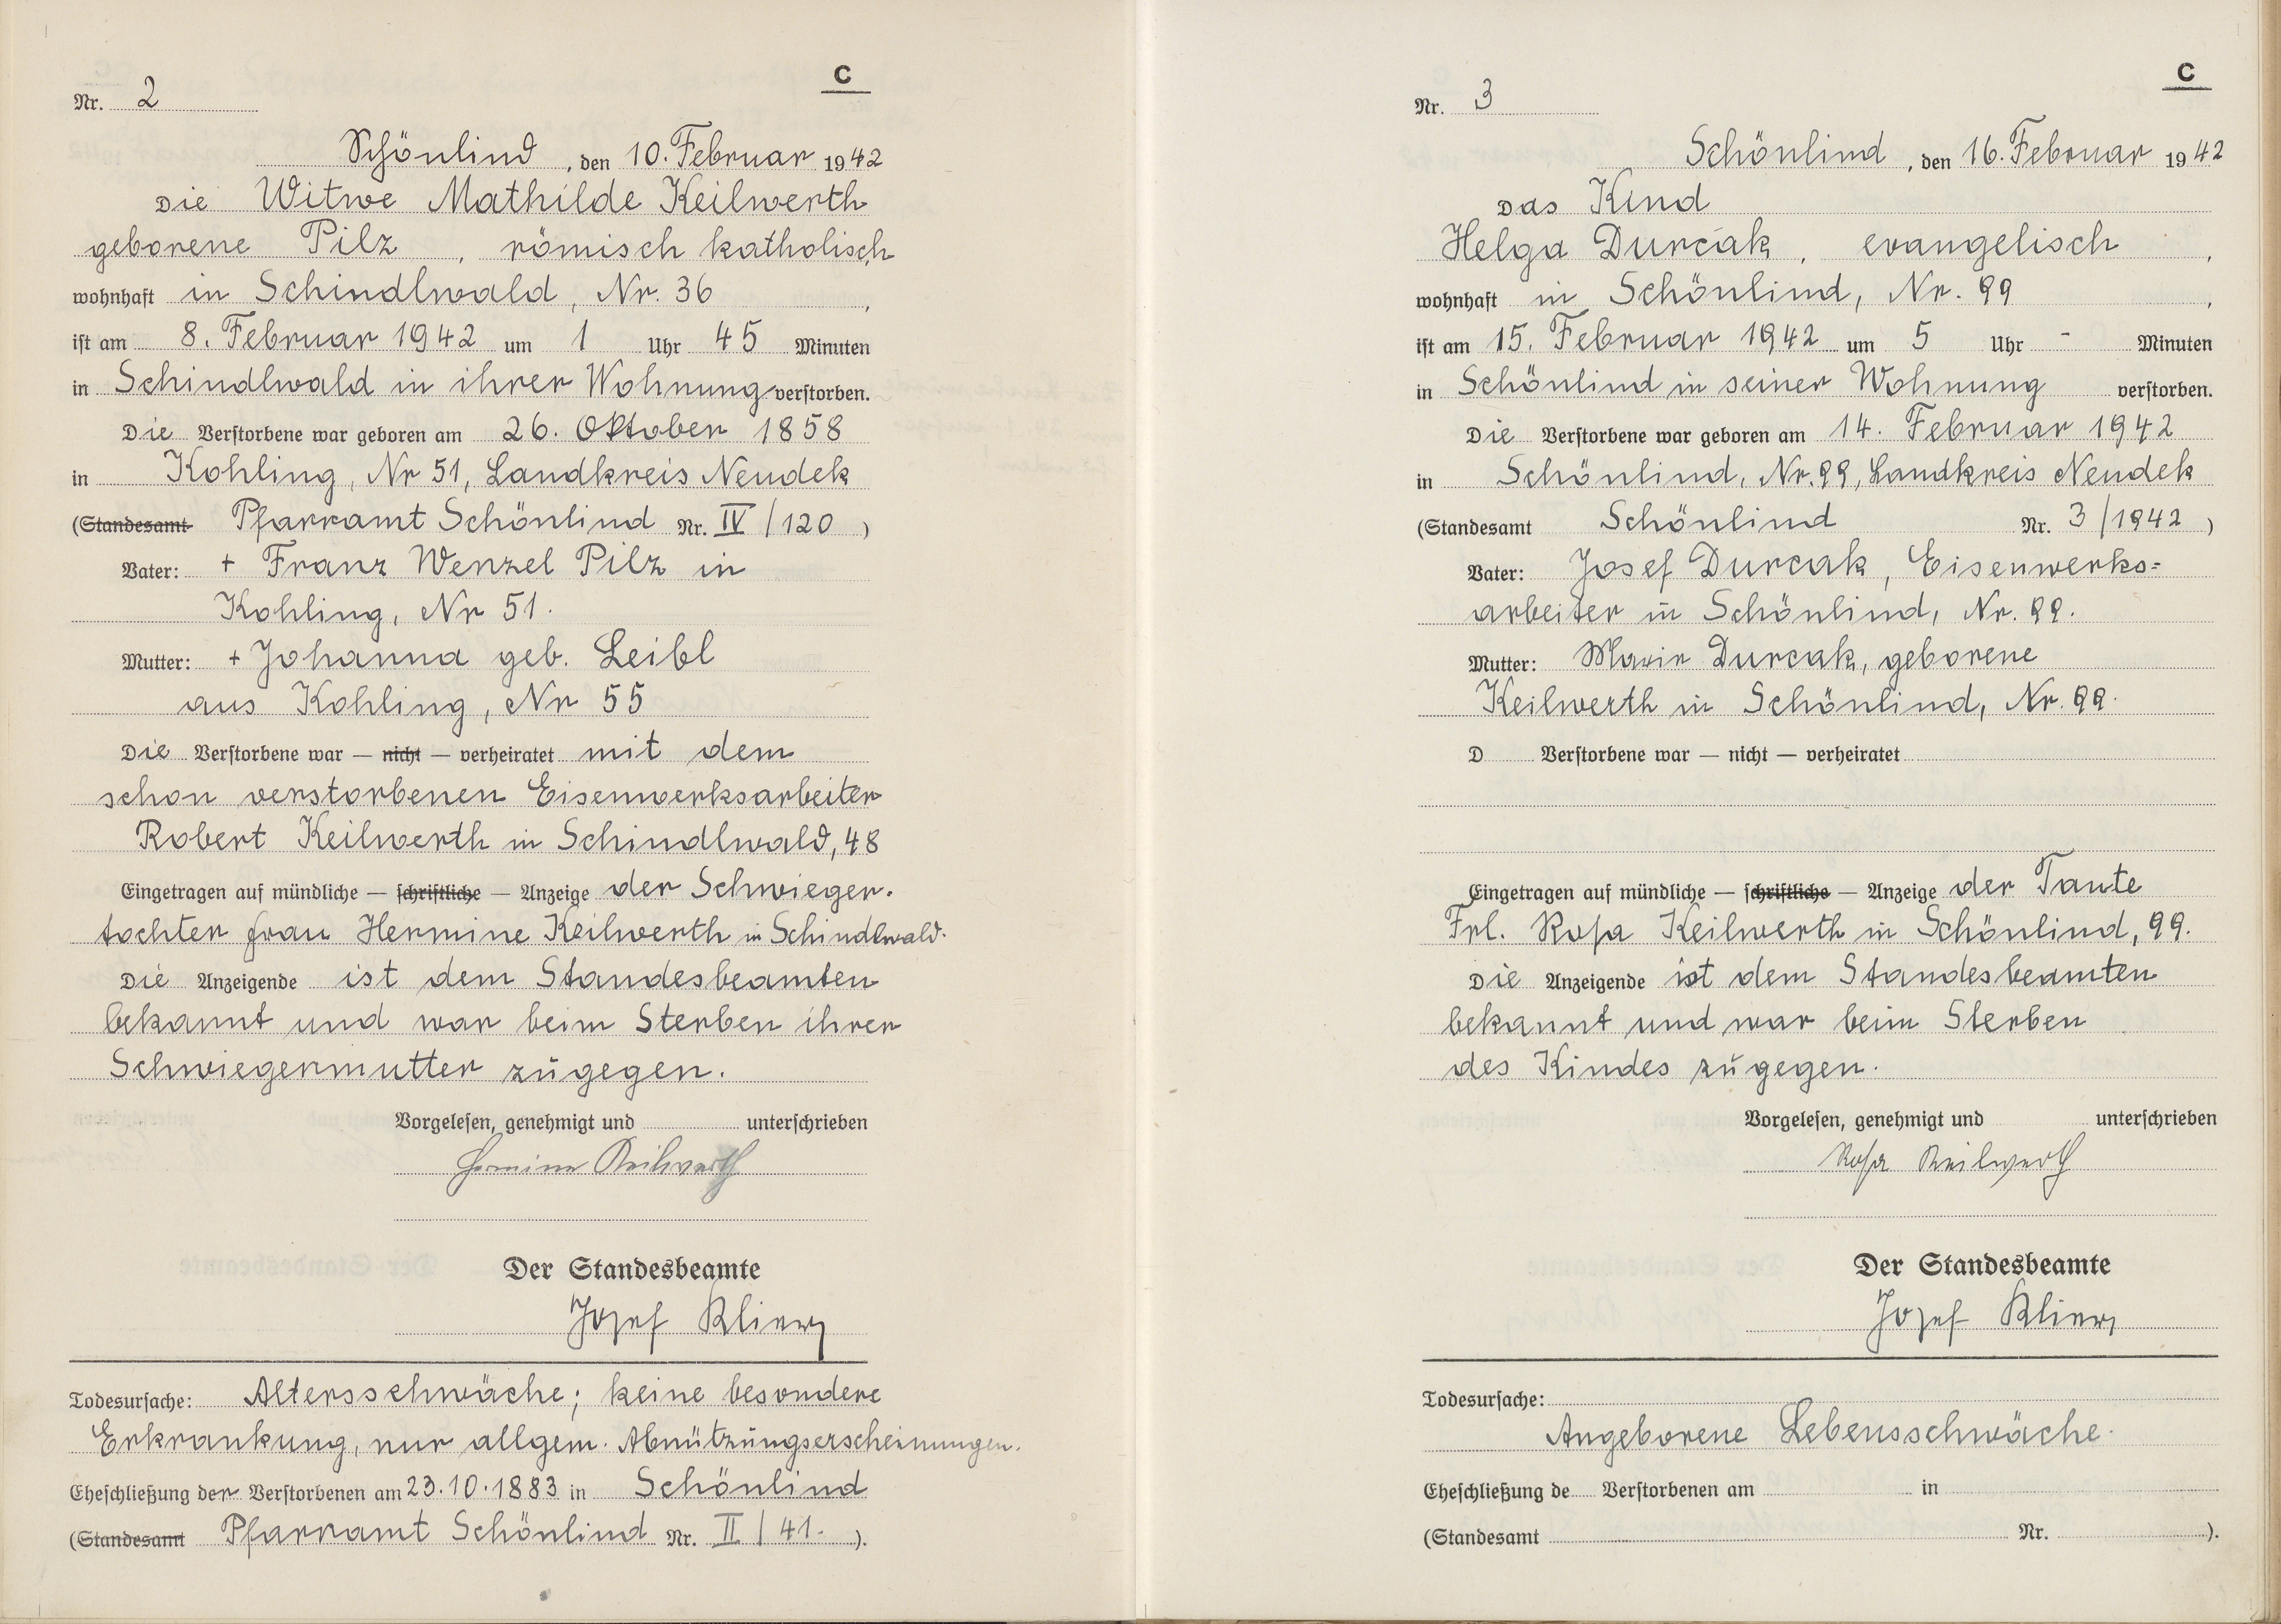 C
Nr. 2
Schönlind, den 10. Februar 1942
Die Witwe Mathilde Keilwerth
geborene Pilz, römisch katholisch,
wohnhaft in Schindlwald, Nr. 36,
ist am 8. Februar 1942 um 1 Uhr 45 Minuten
in Schindlwald in ihrer Wohnung verstorben.
Die Verstorbene war geboren am 26. Oktober 1858
in Kohling, Nr 51, Landkreis Neudek
(Standesamt Pfarramt Schönlind Nr. IV / 120)
Vater: + Franz Wenzel Pilz in
Kohling, Nr 51.
Mutter: + Johanna geb. Leibl
aus Kohling, Nr 55
Die Verstorbene war — nicht — verheiratet mit dem
schon verstorbenen Eisenwerksarbeiter
Robert Keilwerth in Schindlwald, 48
Eingetragen auf mündliche — schriftliche — Anzeige der Schwieger-
tochter Frau Hermine Keilwerth in Schindlwald.
Die Anzeigende ist dem Standesbeamten
bekannt und war beim Sterben ihrer
Schwiegermutter zugegen.
Vorgelesen, genehmigt und unterschrieben
Hermine Keilwerth
Der Standesbeamte
Josef Klier
Todesursache: Altersschwäche; keine besondere
Erkrankung, nur allgem. Abnützungserscheinungen.
Eheschließung der Verstorbenen am 23.10.1883 in Schönlind
(Standesamt Pfarramt Schönlind Nr. II / 41.).
C
Nr. 3
Schönlind, den 16. Februar 1942
Das Kind
Helga Durcak, evangelisch,
wohnhaft in Schönlind, Nr. 99,
ist am 15. Februar 1942 um 5 Uhr - Minuten
in Schönlind in seiner Wohnung verstorben.
Die Verstorbene war geboren am 14. Februar 1942
in Schönlind, Nr. 99, Landkreis Neudek
(Standesamt Schönlind Nr. 3/1942)
Vater: Josef Durcak, Eisenwerks=
arbeiter in Schönlind, Nr. 99.
Mutter: Marie Durcak, geborene
Keilwerth in Schönlind, Nr. 99.
D Verstorbene war — nicht — verheiratet
Eingetragen auf mündliche — schriftliche — Anzeige der Tante
Frl. Rosa Keilwerth in Schönlind, 99.
Die Anzeigende ist dem Standesbeamten
bekannt und war beim Sterben
des Kindes zugegen.
Vorgelesen, genehmigt und unterschrieben
Rosa Keilwerth
Der Standesbeamte
Josef Klier
Todesursache:
Angeborene Lebensschwäche.
Eheschließung de Verstorbenen am in
(Standesamt Nr. ).